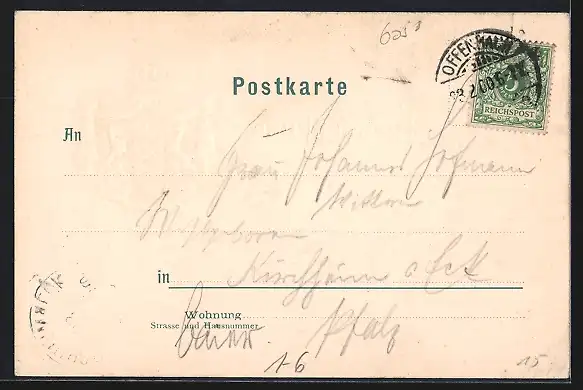 6251
OFFENBACH
23.2.00.6-7N.
5
REICHSPOST
Postkarte
An
Frau Johannes Hofmann
Wittwe
Wohlgeboren
in Kirchheim a Eck
Wohnung
Strasse und Hausnummer
Pfalz
16
15.-